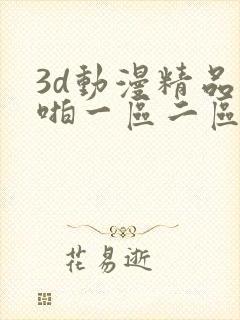 3d動漫精品
啪一區二區
花易逝